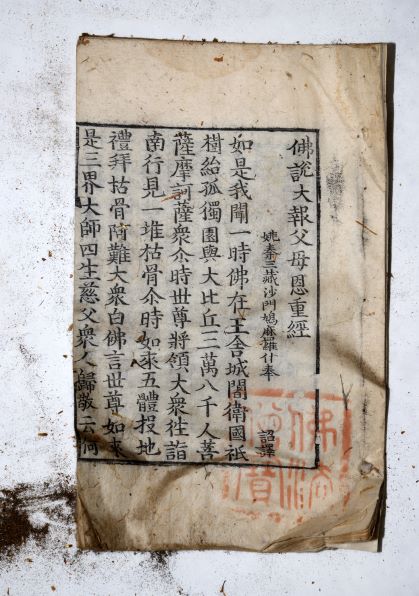 佛說大報父母恩重經
姚秦三藏沙門鳩摩羅什奉 詔譯
如是我聞一時佛在王舍城闍衛國祇
樹給孤獨園與大比丘三萬八千人菩
薩摩訶薩衆尒時世尊將領大衆徃詣
南行見一堆枯骨尒時如來五體投地
禮拜枯骨阿難大衆白佛言世尊如來
是三界大師四生慈父衆人歸敬云何
佛法
僧寶